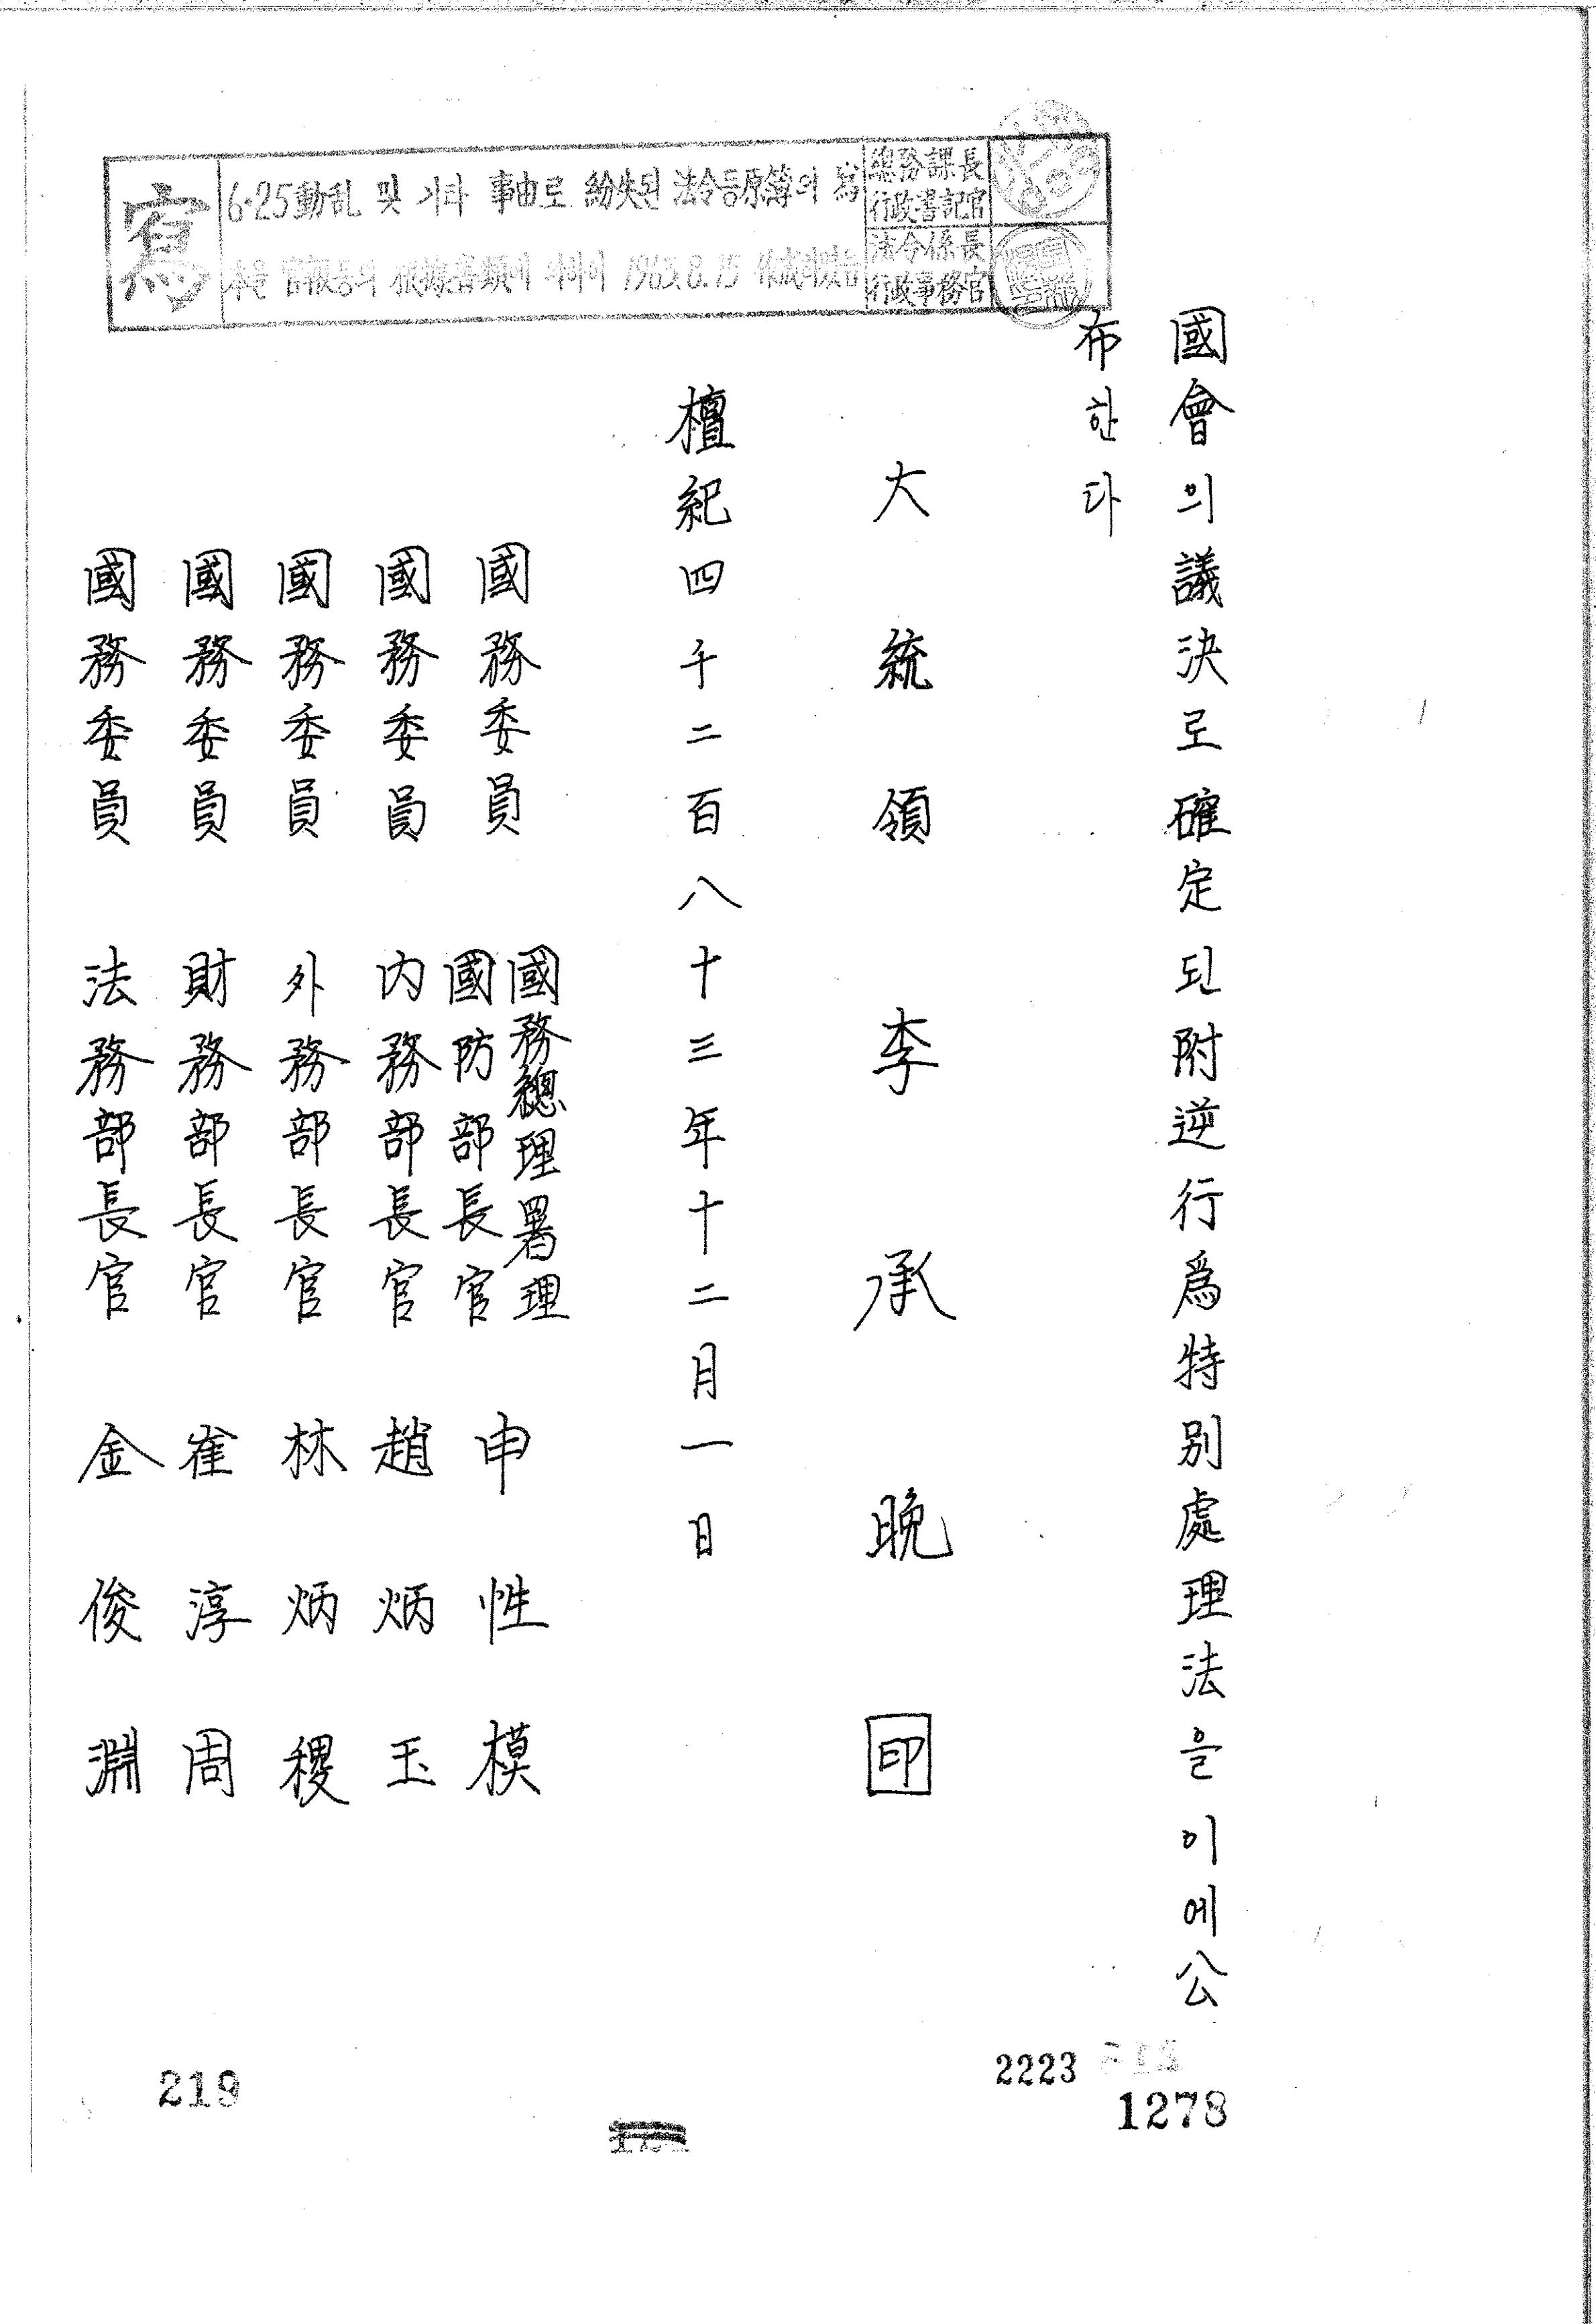 寫
6·25動乱 및 기타 事由로 紛失된 法令등原簿의 寫
本은 官報등의 根據書類에 따라서 1963.8.15 作成되였음
總務課長
行政書記官
法令係長
行政事務官
國會의議決로確定된附逆行爲特別處理法을이에公
布한다
大統領 李承晩 印
檀紀四千二百八十三年十二月一日
國務委員 國務總理署理 國防部長官 申性模
國務委員 內務部長官 趙炳玉
國務委員 外務部長官 林炳稷
國務委員 財務部長官 崔淳周
國務委員 法務部長官 金俊淵
2223
1278
219